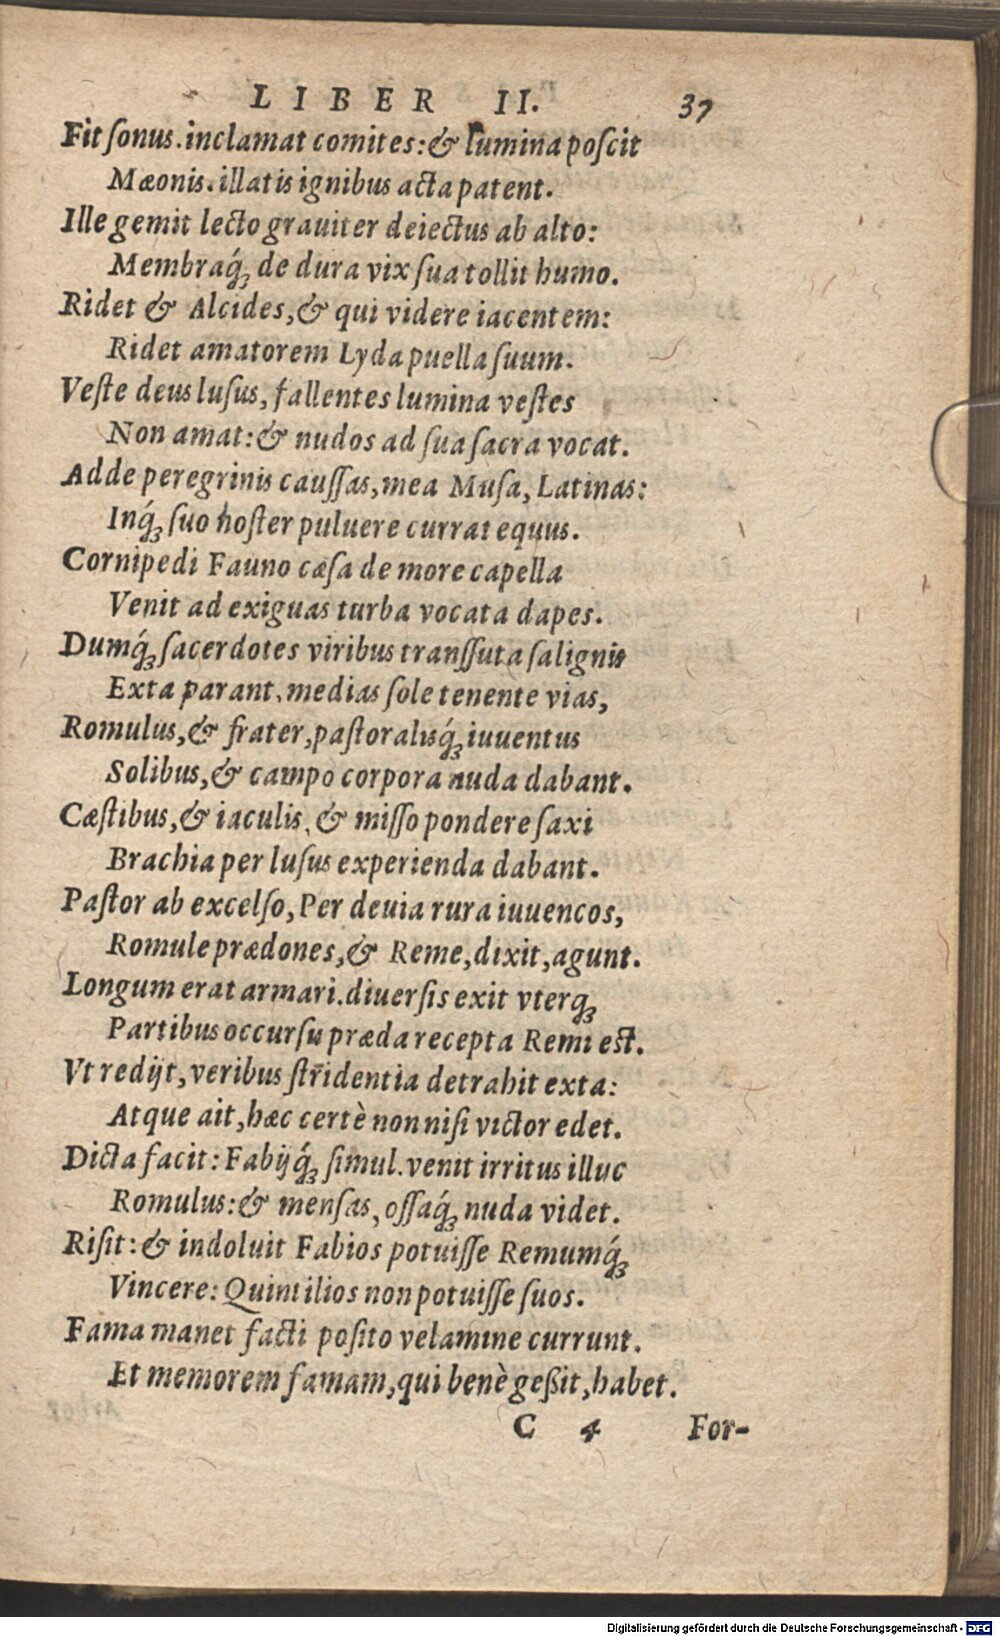 LIBER II. 37
Fit ſonus. inclamat comites: & lumina poſcit
Mæonis. illatis ignibus acta patent.
Ille gemit lecto grauiter deiectus ab alto:
Membraq́; de dura vix ſua tollit humo.
Ridet & Alcides, & qui videre iacentem:
Ridet amatorem Lyda puella ſuum.
Veſte deus luſus, fallentes lumina veſtes
Non amat: & nudos ad ſua ſacra vocat.
Adde peregrinis cauſſas, mea Muſa, Latinas:
Inq́; ſuo noſter puluere currat equus.
Cornipedi Fauno cæſa de more capella
Venit ad exiguas turba vocata dapes.
Dumq́; ſacerdotes viribus tranſſuta ſalignis
Exta parant, medias ſole tenente vias,
Romulus, & frater, paſtoralisq́; iuuentus
Solibus, & campo corpora nuda dabant.
Cæſtibus, & iaculis, & miſſo pondere ſaxi
Brachia per luſus experienda dabant.
Paſtor ab excelſo, Per deuia rura iuuencos,
Romule prædones, & Reme, dixit, agunt.
Longum erat armari. diuerſis exit vterq;
Partibus occurſu præda recepta Remi eſt.
Vt redijt, veribus ſtridentia detrahit exta:
Atque ait, hæc certè non niſi victor edet.
Dicta facit: Fabijq́; ſimul. venit irritus illuc
Romulus: & menſas, oſſaq́; nuda videt.
Riſit: & indoluit Fabios potuiſſe Remumq́;
Vincere: Quintilios non potuiſſe ſuos.
Fama manet facti poſito velamine currunt.
Et memorem famam, qui benè geßit, habet.
C 4 For-
Digitalisierung gefördert durch die Deutsche Forschungsgemeinschaft - DFG